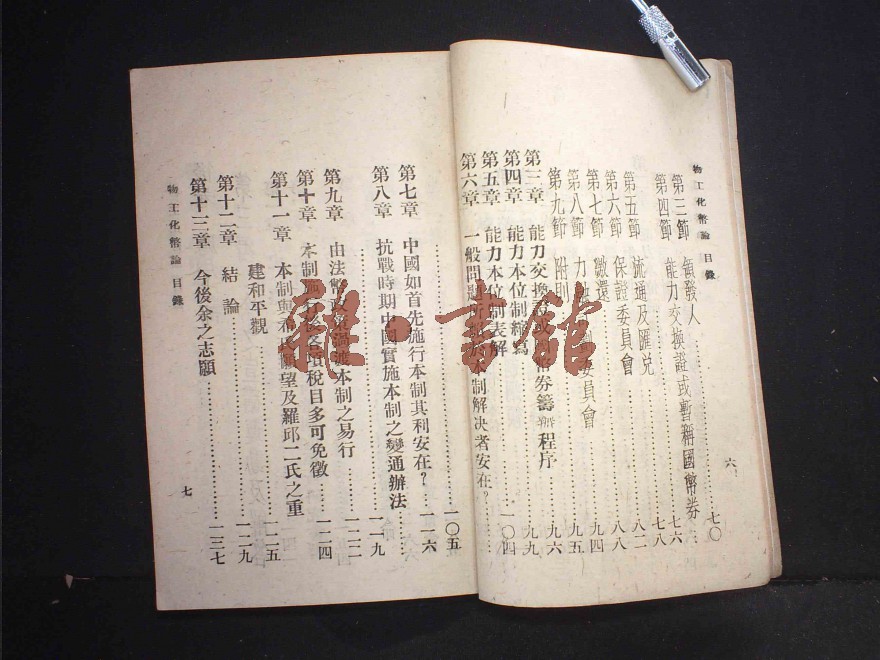 物工化幣論 目錄 六
第三節 領發人……七〇
第四節 能力交換證或暫稱國幣券……七六
第五節 流通及匯兌……七八
第六節 保證委員會……八二
第七節 繳還……八八
第八節 力 委員會……九四
第九節 附則……九五
第三章 能力交換證或 幣券籌辦程序……九六
第四章 能力本位制 ……九九
第五章 能力本位制表解……一〇四
第六章 一般問題所 於本制解決者安在?……
……一〇五
第七章 中國如首先施行本制其利安在?……一一六
第八章 抗戰時期中國實施本制之變通辦法……一一九
第九章 由法幣政策過渡本制之易行……一二二
第十章 本制施行後各項稅目多可免徵……一二四
第十一章 本制與 氏願望及羅邱二氏之重
建和平觀……一二五
第十二章 結論……一二九
第十三章 今後余之志願……一三七
物工化幣論 目錄 七
雜·書館